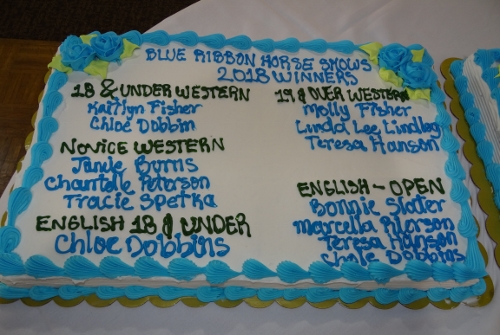 BLUE RIBBON HORSE SHOWS
2018 WINNERS
18 & UNDER WESTERN
Kaitlyn Fisher
Chloe Dobbim
NOVICE WESTERN
Burns
Chantelle Peterson
Tracie Spetka
ENGLISH 18 & UNDER
Chloe Dobbins
19 & OVER WESTERN
Molly Fisher
Linda Lee Lindberg
Teresa Hanson
ENGLISH - OPEN
Bonnie Slater
Marcella Peterson
Teresa Hanson
Chole Dobbins